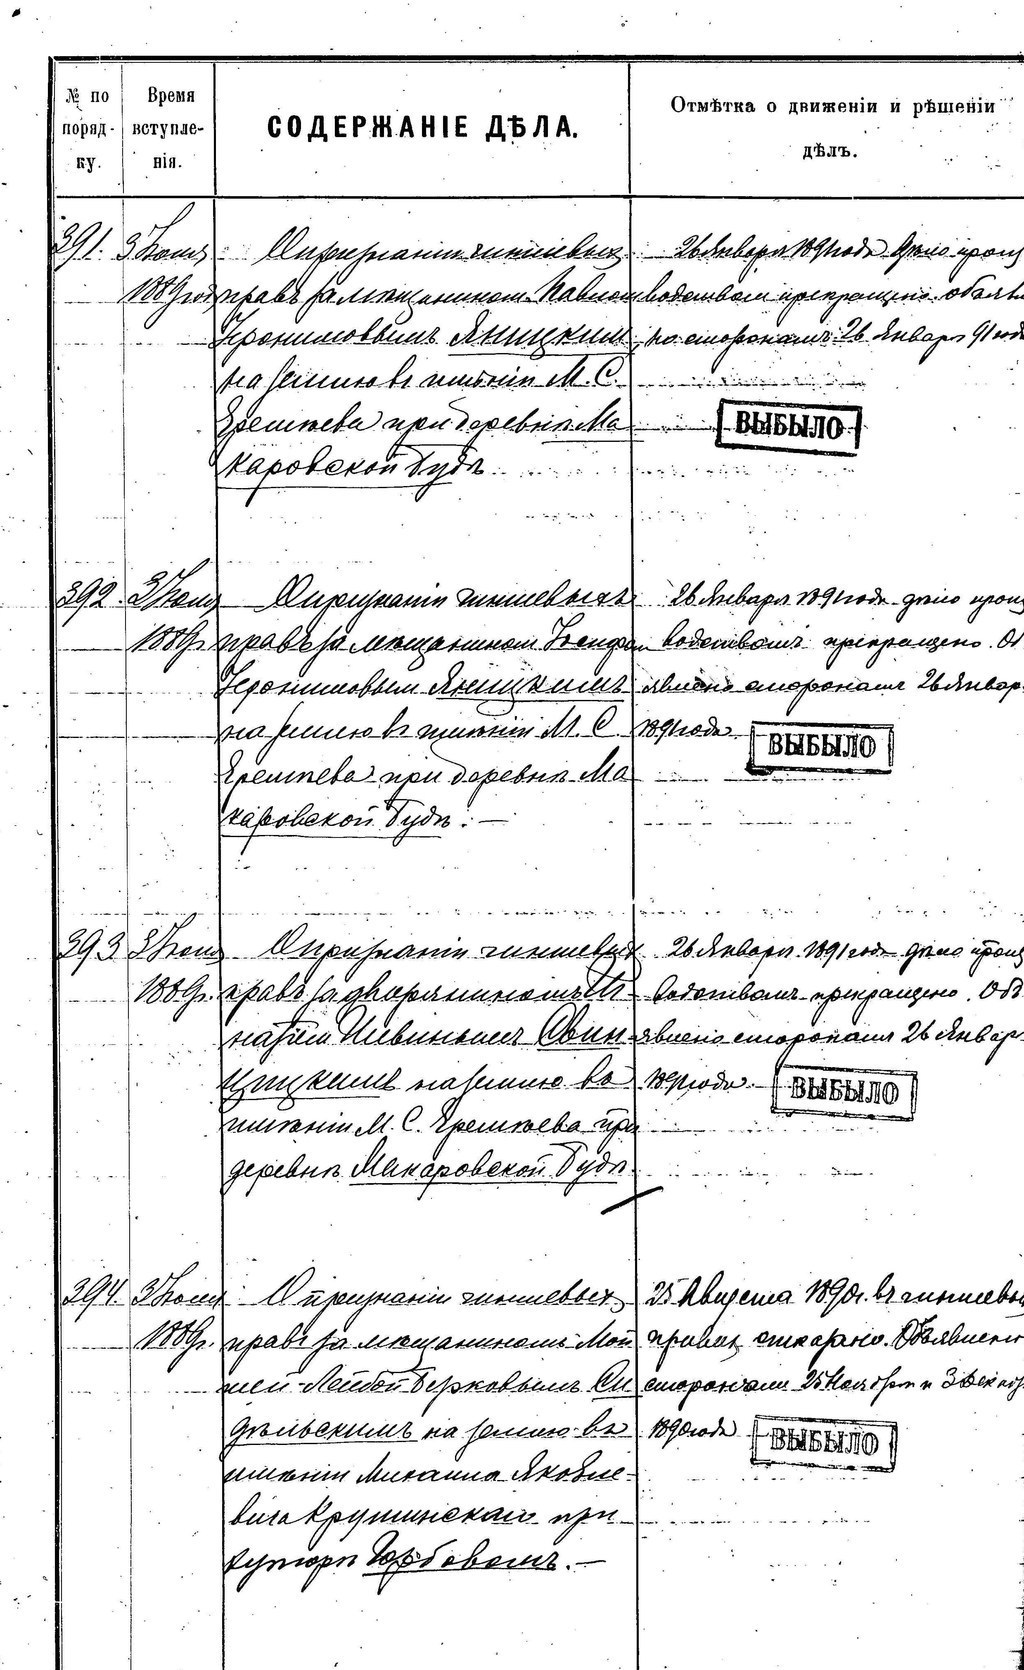 № по поряд-ку.
Время вступле-нія.
СОДЕРЖАНІЕ ДѢЛА.
Отмѣтка о движеніи и рѣшеніи дѣлъ.
391. 3 Іюня 1889 года
О признаніи чиншевыхъ
правъ за мѣщаниномъ Павломъ
Іеронимовымъ Яницкимъ
на землю въ имѣніи М. С.
при деревнѣ Ма
каровской Будѣ
26 Января 1891 года дѣло произ
водствомъ прекращено. объявле
но сторонамъ 26 Января 91 года
ВЫБЫЛО
392. 3 Іюня 1889 г.
О признаніи чиншевыхъ
правъ за мѣщаниномъ Іосифом
Іеронимовым Яницкимъ
на землю въ имѣніи М. С
при деревнѣ Ма
каровской Будѣ. —
26 Января 1891 года дѣло произ
водствомъ прекращено. Об
явлено сторонамъ 26 Январ
1891 года
ВЫБЫЛО
393 3 Іюня 1889 г.
О признаніи чиншевыхъ
правъ за дворяниномъ Иг
натіем Свин-
цицкимъ на землю въ
имѣніи М. С. при
деревнѣ Макаровской Будѣ
26 Января 1891 года дѣло произ
водствомъ прекращено. Объ
явлено сторонамъ 26 Январ
1891 года.
ВЫБЫЛО
394. 3 Іюня 1889 г.
О признаніи чиншевыхъ
правъ за мѣщаниномъ Мой
шей-Лейбой Берковымъ Си
дѣльскимъ на землю въ
имѣніи Михаила Яковле-
вича Крушинскаго при
хуторѣ —
25 Августа 1890 г. въ чиншевых
правах отказано. Объявлено
сторонами 25 Ноября и 3 Декабр
1890 года
ВЫБЫЛО